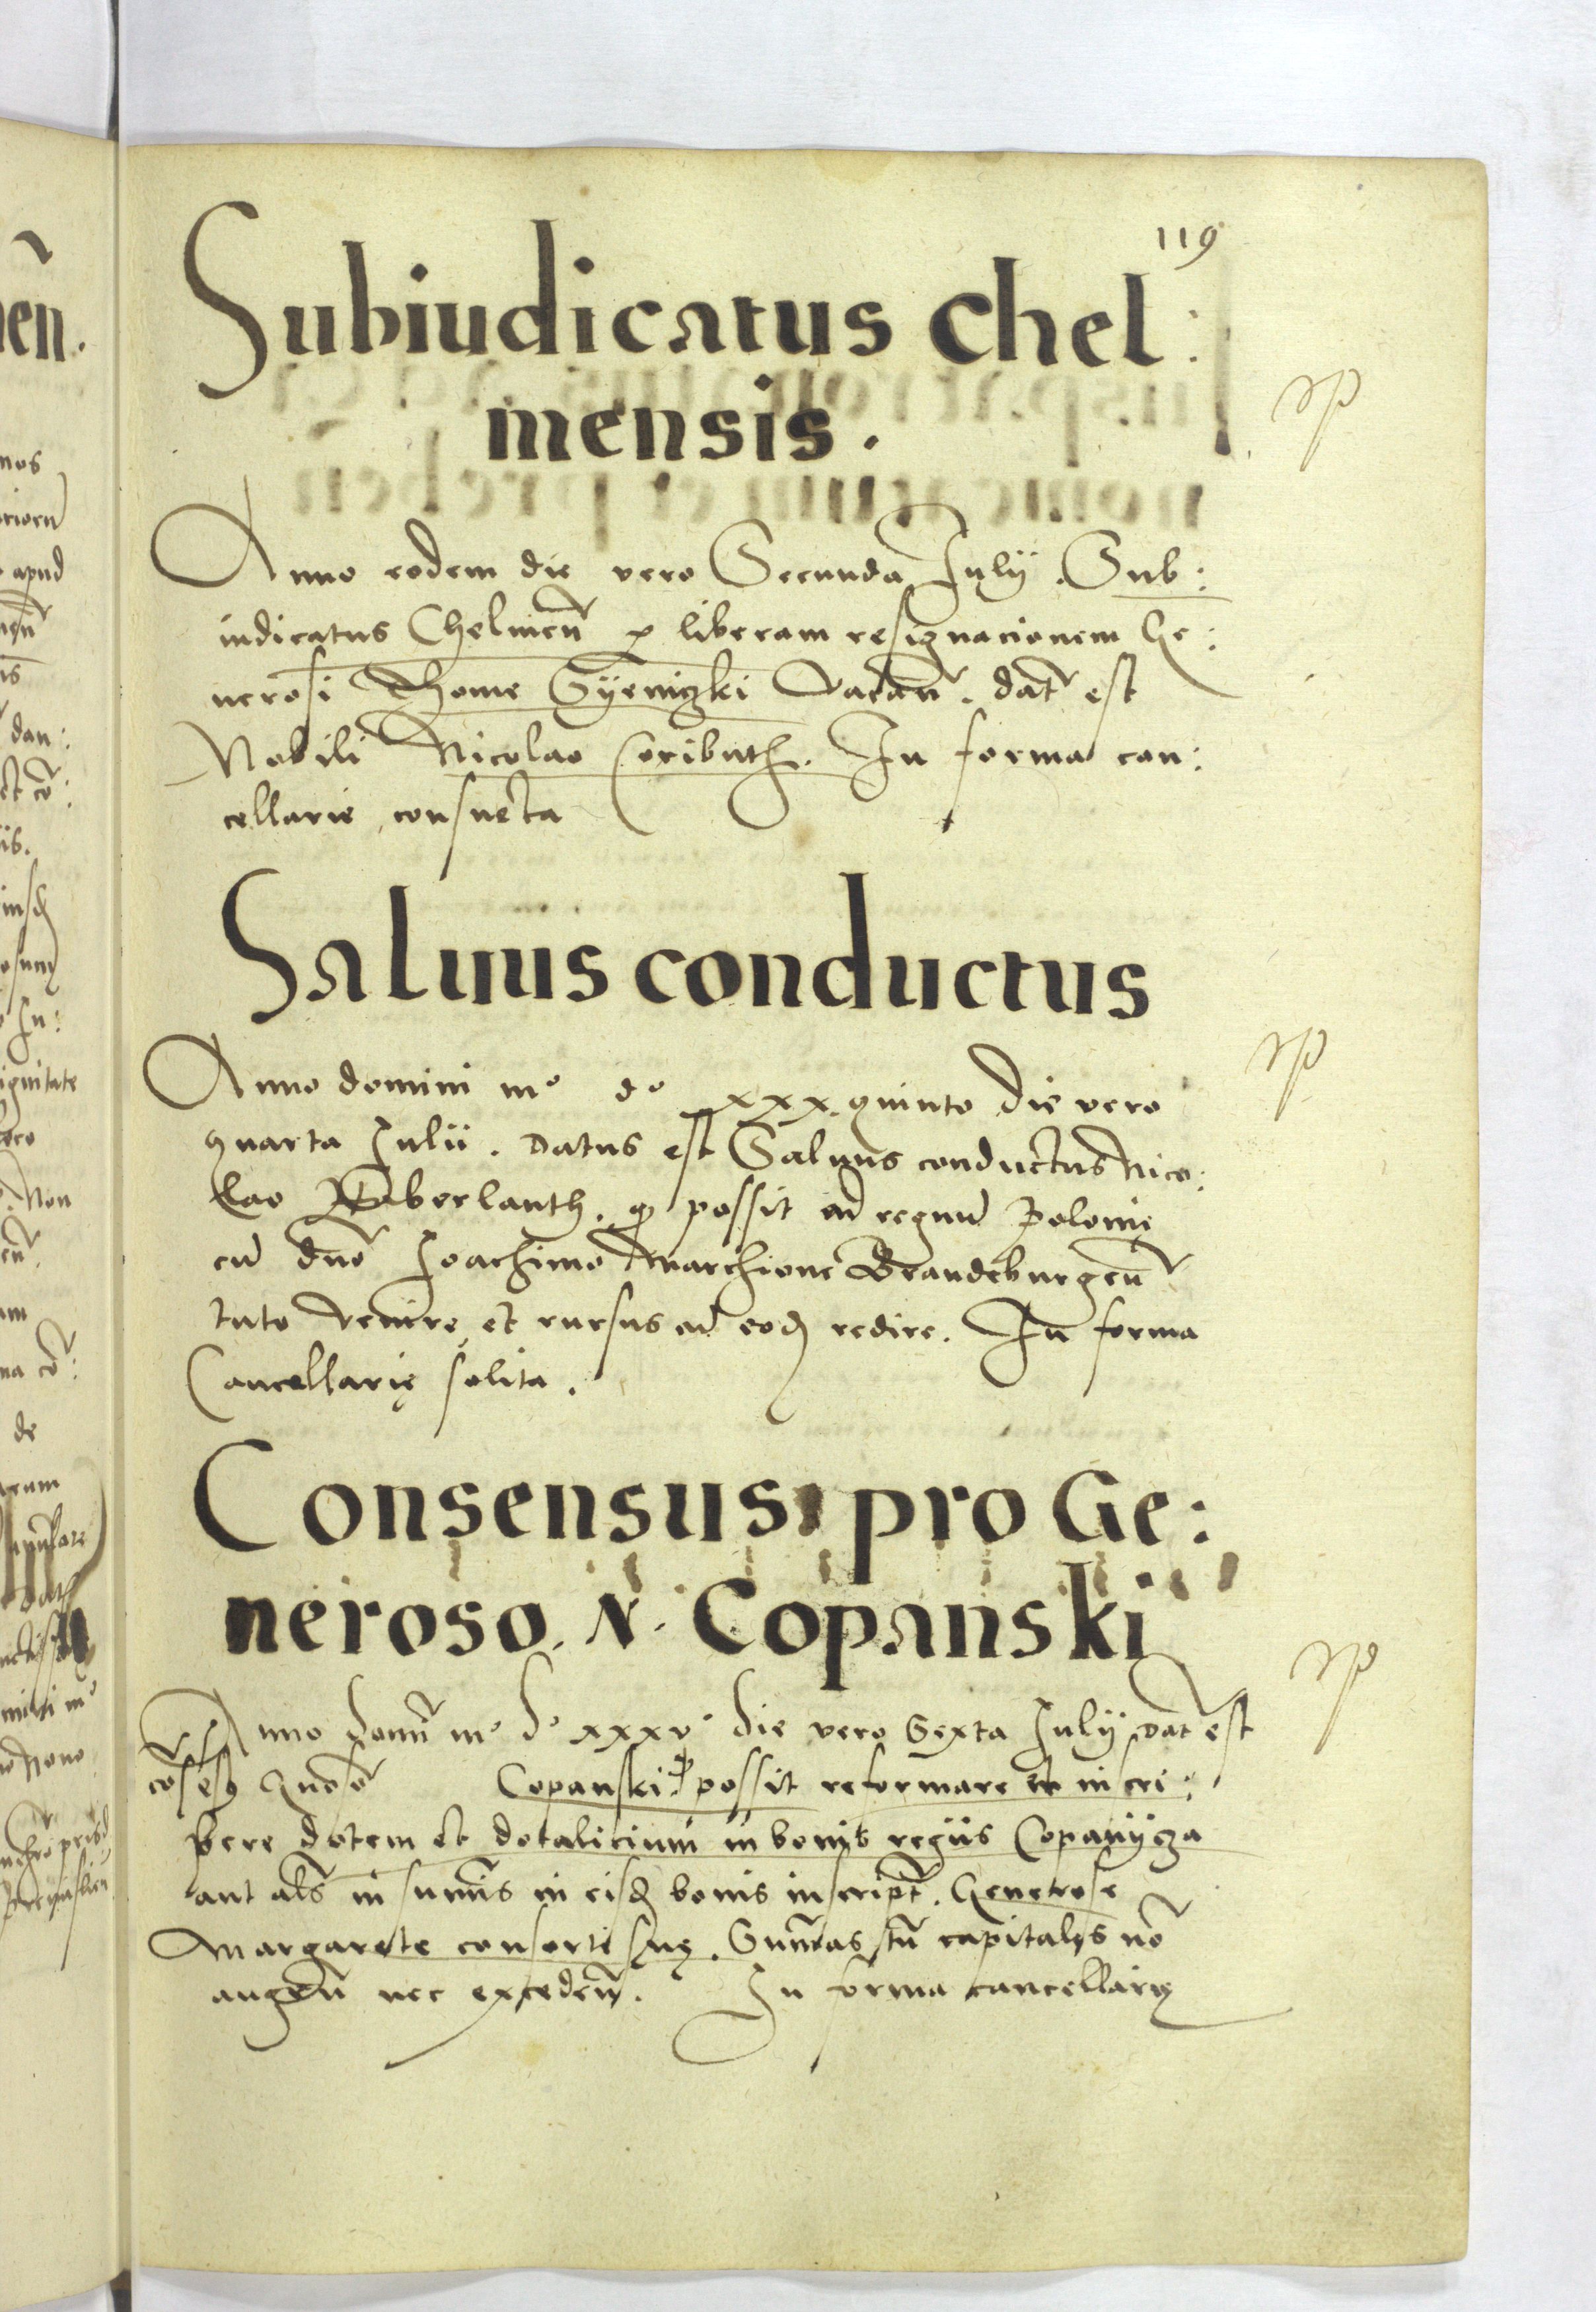 119
Subiudicatus chel:
mensis.
Anno eodem die vero Secunda Julÿ. Sub:
iudicatus Chelmeñ p liberam resignacionem Ge:
nerosi Thome Syeniczki vacañ. dat̃ est
Nobili Nicolao Coributh. In forma can:
cellarie consueta
Saluus conductus
Anno domini mº dº xxx quinto die vero
quarta Julii. datus est Saluus conductus Nico:
lao Haberlanth. qͥ possit ad regnũ Polonię
cũ dño Joachimo Marchione Brandeburgeñ
tuto venire et rursus ad eođ redire. In forma
Cancellarię solita.
Consensus pro Ge:
neroso. N. Copanski
Anno domĩ mº dº xxxvº die vero Sexta Julÿ dat̃ est
cõsesʒ Gnõso Copanski possit reformare et inscri:
bere dotem et dotalicium in bonis regiis Copanÿcza
aut als̃ in sumis in eisđ bonis inscript̃. Generose
Margarete consorti suę. Sum̃as tñ capitales nõ
augeñ nec excedeñ. In forma cancellarię